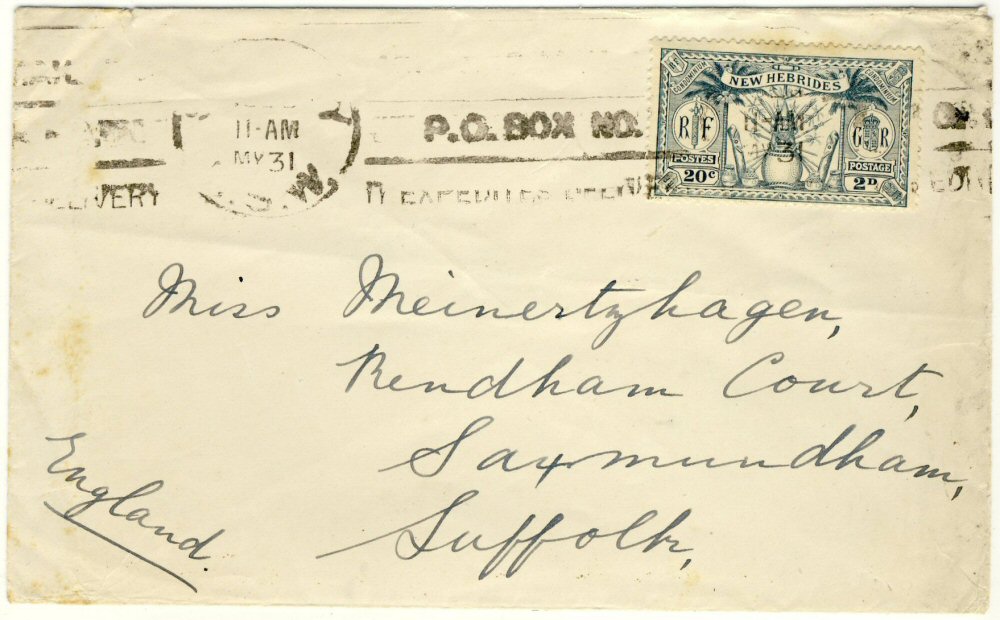 11-AM
MY 31
N.S.W.
P.O. BOX NO.
NEW HEBRIDES
CONDOMINIUM
RF
GR
POSTES
POSTAGE
20c
2D
Miss Meinertzhagen,
Rendham Court,
Saxmundham,
Suffolk,
England.